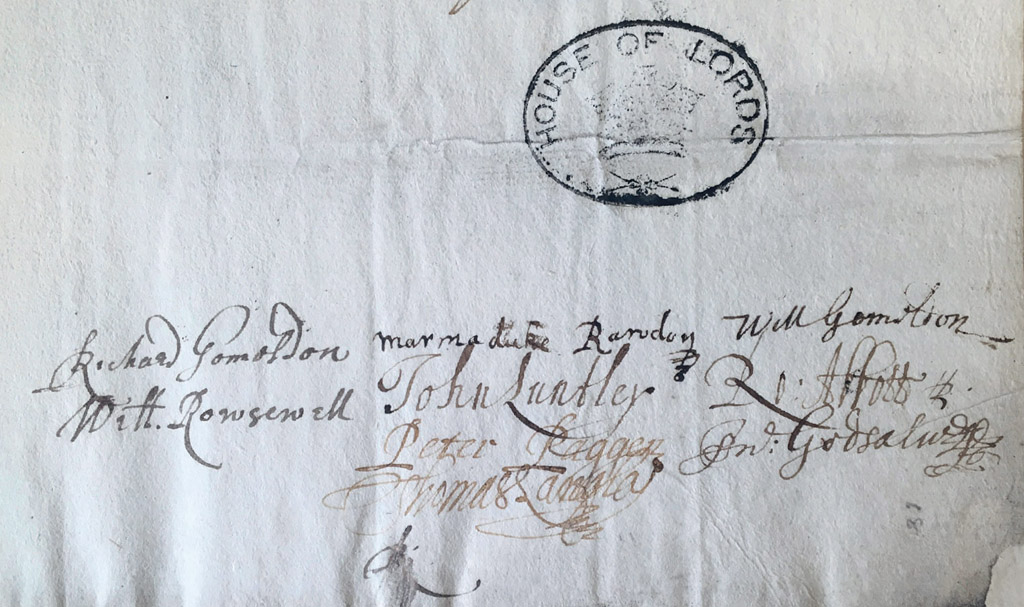 HOUSE OF LORDS
Richard Gomoldon Marmaduke Rawdon Will Gomoldon
Will. Rowsewell John Luntley Ro: Abbott
Peter Jno: Godsalve
Thomas